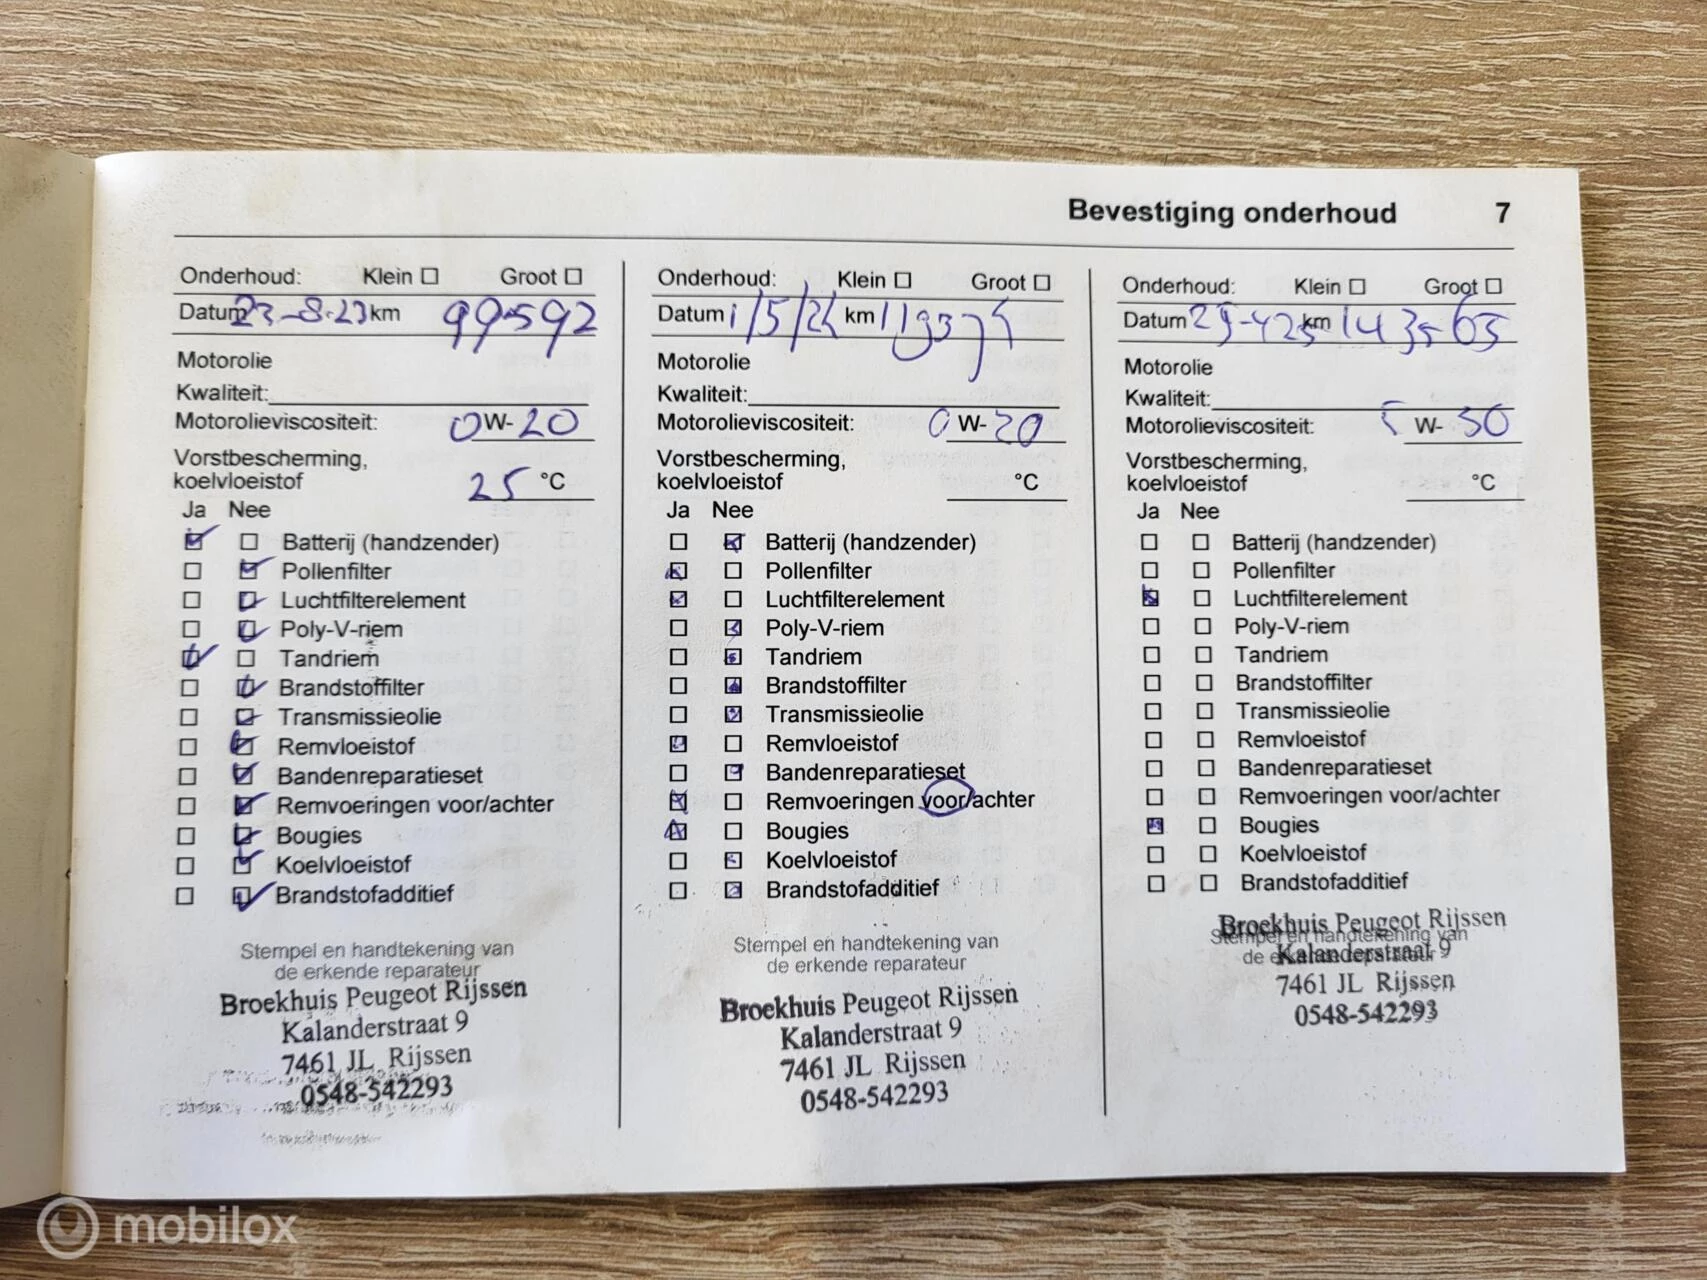 Bevestiging onderhoud 7
Onderhoud: Klein Groot
Datum 23-8-23 km 99592
Motorolie
Kwaliteit:
Motorolieviscositeit: 0 W- 20
Vorstbescherming,
koelvloeistof 25 °C
Ja Nee
Batterij (handzender)
Pollenfilter
Luchtfilterelement
Poly-V-riem
Tandriem
Brandstoffilter
Transmissieolie
Remvloeistof
Bandenreparatieset
Remvoeringen voor/achter
Bougies
Koelvloeistof
Brandstofadditief
Stempel en handtekening van
de erkende reparateur
Broekhuis Peugeot Rijssen
Kalanderstraat 9
7461 JL Rijssen
0548-542293
Onderhoud: Klein Groot
Datum 1/5/24 km
Motorolie
Kwaliteit:
Motorolieviscositeit: 0 W- 20
Vorstbescherming,
koelvloeistof °C
Ja Nee
Batterij (handzender)
Pollenfilter
Luchtfilterelement
Poly-V-riem
Tandriem
Brandstoffilter
Transmissieolie
Remvloeistof
Bandenreparatieset
Remvoeringen voor/achter
Bougies
Koelvloeistof
Brandstofadditief
Stempel en handtekening van
de erkende reparateur
Broekhuis Peugeot Rijssen
Kalanderstraat 9
7461 JL Rijssen
0548-542293
Onderhoud: Klein Groot
Datum km
Motorolie
Kwaliteit:
Motorolieviscositeit: 5 W- 30
Vorstbescherming,
koelvloeistof °C
Ja Nee
Batterij (handzender)
Pollenfilter
Luchtfilterelement
Poly-V-riem
Tandriem
Brandstoffilter
Transmissieolie
Remvloeistof
Bandenreparatieset
Remvoeringen voor/achter
Bougies
Koelvloeistof
Brandstofadditief
Broekhuis Peugeot Rijssen
Stempel en handtekening van
Kalanderstraat 9
de erkende reparateur
7461 JL Rijssen
0548-542293
mobilox